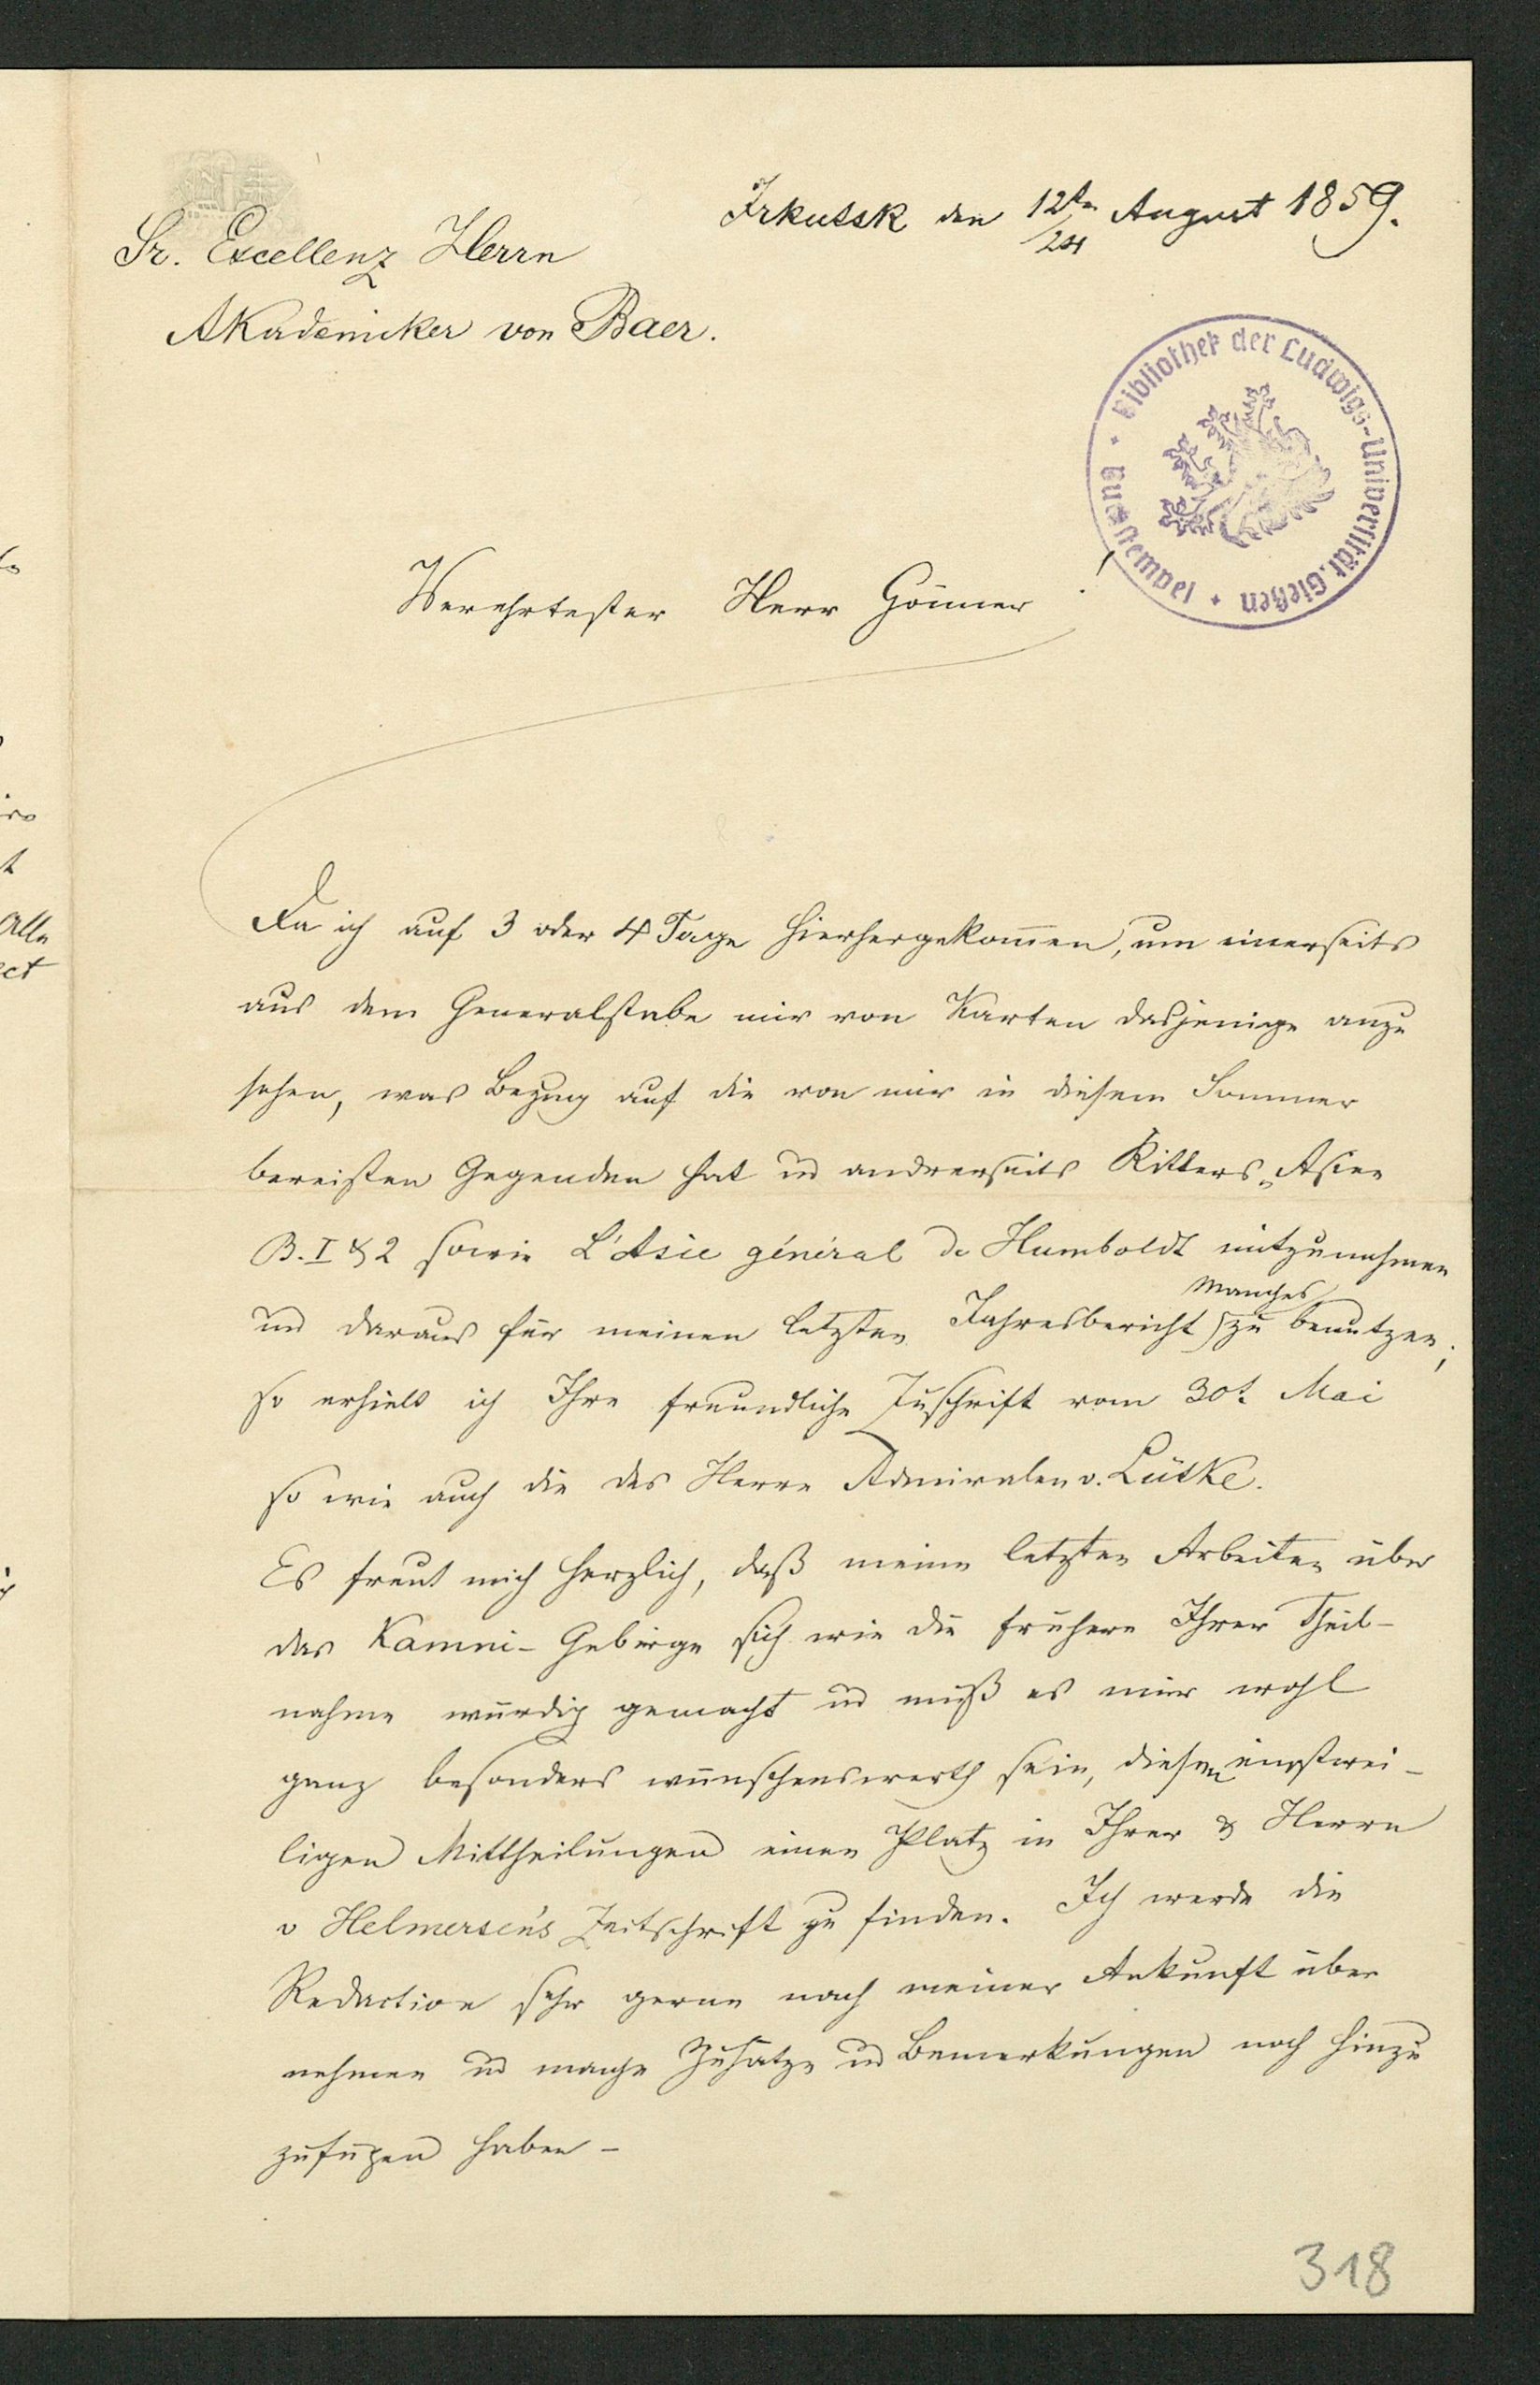 Irkutsk den 12ten/24 August 1859.
Sr. Excellenz Herrn
Akademiker von Baer.
Bibliothek der Ludwigs-Universität. Gießen
Buchstempel
Verehrtester Herr Gönner!
Da ich auf 3 oder 4 Tage hierhergekommen, um einerseits
aus dem Generalstabe mir von Karten dasjenige anzu
sehen, was Bezug auf die von mir in diesem Sommer
bereisten Gegenden hat und andrerseits Ritters Asien
B. I & 2 sowie L'Asie général de Humboldt mitzunehmen
und daraus für meinen letzten Jahresbericht Manches zu benutzen;
so erhielt ich Ihre freundliche Zuschrift vom 30t. Mai
so wie auch die des Herrn Admiralen v. Lütke.
Es freut mich herzlich, daß meine letzten Arbeiten über
das Kamni-Gebirge sich wie die frühern Ihrer Theil-
nahme würdig gemacht und muß es mir wohl
ganz besonders wünschenswerth sein, diesen einstwei-
ligen Mittheilungen einen Platz in Ihrer & Herrn
v Helmersen's Zeitschrift zu finden. Ich werde die
Redaction sehr gerne nach meiner Ankunft über
nehmen und manche Zusätze und Bemerkungen noch hinzu
zufügen haben –
318